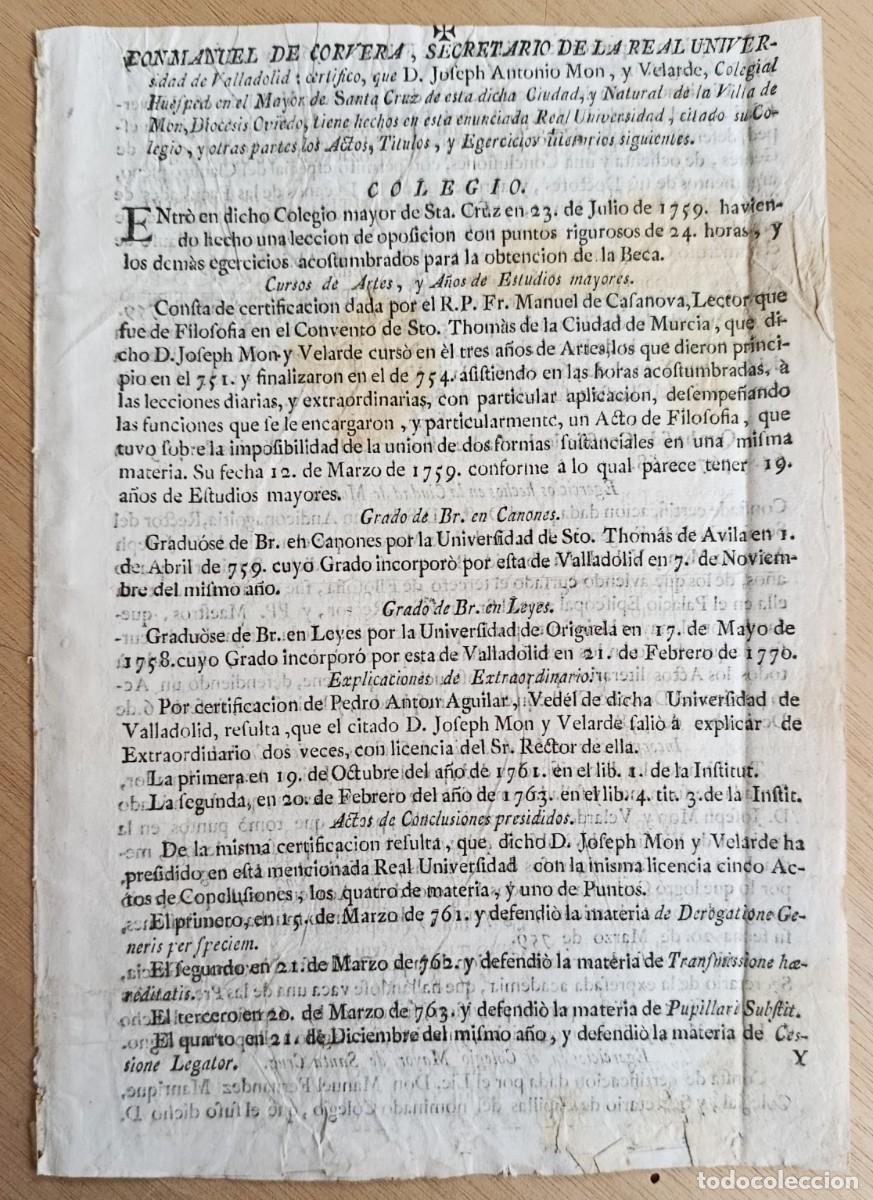 ✠
DON MANUEL DE CORVERA, SECRETARIO DE LA REAL UNIVER-
sidad de Valladolid: certifico, que D. Joseph Antonio Mon, y Velarde, Colegial
Huesped en el Mayor de Santa Cruz de esta dicha Ciudad, y Natural de la Villa de
Mon, Diocesis Oviedo, tiene hechos en esta enunciada Real Universidad, citado su Co-
legio, y otras partes los Actos, Titulos, y Egercicios literarios siguientes.
COLEGIO.
ENtrò en dicho Colegio mayor de Sta. Cruz en 23. de Julio de 1759. havien-
do hecho una leccion de oposicion con puntos rigurosos de 24. horas, y
los demàs egercicios acostumbrados para la obtencion de la Beca.
Cursos de Artes, y Años de Estudios mayores.
Consta de certificacion dada por el R.P. Fr. Manuel de Casanova, Lector que
fue de Filosofia en el Convento de Sto. Thomàs de la Ciudad de Murcia, que di-
cho D. Joseph Mon y Velarde cursò en èl tres años de Artes, los que dieron princi-
pio en el 751. y finalizaron en el de 754. asistiendo en las horas acostumbradas, à
las lecciones diarias, y extraordinarias, con particular aplicacion, desempeñando
las funciones que se le encargaron, y particularmente, un Acto de Filosofia, que
tuvo sobre la imposibilidad de la union de dos formas sustanciales en una misma
materia. Su fecha 12. de Marzo de 1759. conforme à lo qual parece tener 19.
años de Estudios mayores.
Grado de Br. en Canones.
Graduóse de Br. en Canones por la Universidad de Sto. Thomás de Avila en 1.
de Abril de 759. cuyo Grado incorporò por esta de Valladolid en 7. de Noviem-
bre del mismo año.
Grado de Br. en Leyes.
Graduòse de Br. en Leyes por la Universidad de Origuela en 17. de Mayo de
1758. cuyo Grado incorporó por esta de Valladolid en 21. de Febrero de 1770.
Explicaciones de Extraordinario.
Por certificacion de Pedro Anton Aguilar, Vedél de dicha Universidad de
Valladolid, resulta, que el citado D. Joseph Mon y Velarde saliò à explicar de
Extraordinario dos veces, con licencia del Sr. Rector de ella.
La primera en 19. de Octubre del año de 1761. en el lib. 1. de la Institut.
La segunda, en 20. de Febrero del año de 1763. en el lib. 4. tit. 3. de la Instit.
Actos de Conclusiones presididos.
De la misma certificacion resulta, que dicho D. Joseph Mon y Velarde ha
presidido en está mencionada Real Universidad con la misma licencia cinco Ac-
tos de Conclusiones, los quatro de materia, y uno de Puntos.
El primero, en 15. de Marzo de 761. y defendiò la materia de Derogatione Ge-
neris per speciem.
El segundo en 21. de Marzo de 762. y defendiò la materia de Transmissione hæ-
reditatis.
El tercero en 20. de Marzo de 763. y defendiò la materia de Pupillari Substit.
El quarto en 21. de Diciembre del mismo año, y defendiò la materia de Ces-
sione Legator.
Y
todocoleccion